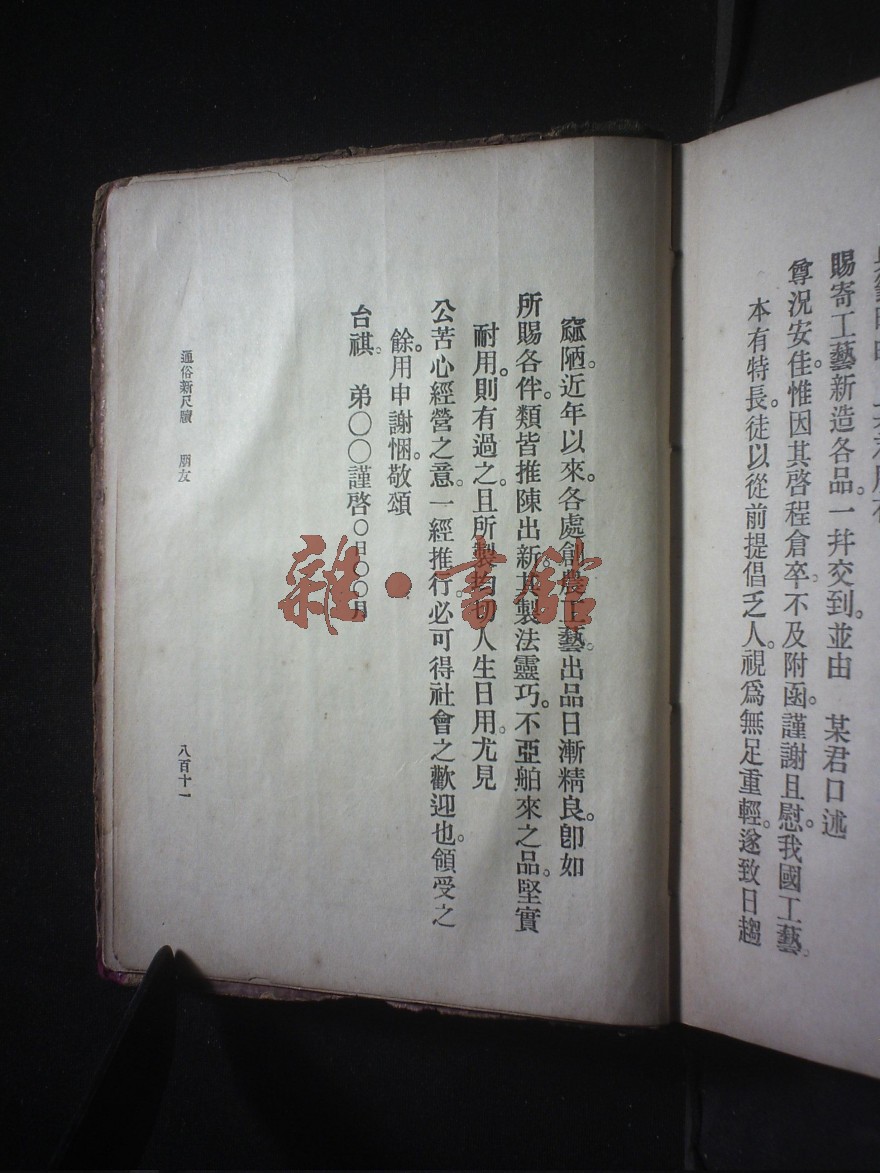 賜寄工藝新造各品。一并交到。並由　某君口述
尊況安佳。惟因其啓程倉卒。不及附函。謹謝且慰。我國工藝。
本有特長。徒以從前提倡乏人。視爲無足重輕。遂致日趨
窳陋。近年以來。各處創農工藝。出品日漸精良。卽如
所賜各件。類皆推陳出新。其製法靈巧。不亞舶來之品。堅實
耐用。則有過之。且所製均切人生日用。尤見
公苦心經營之意。一經推行。必可得社會之歡迎也。領受之
餘。用申謝悃。敬頌
台祺。　弟〇〇謹啓〇日〇〇月
通俗新尺牘　朋友
八百十一
雜·書館